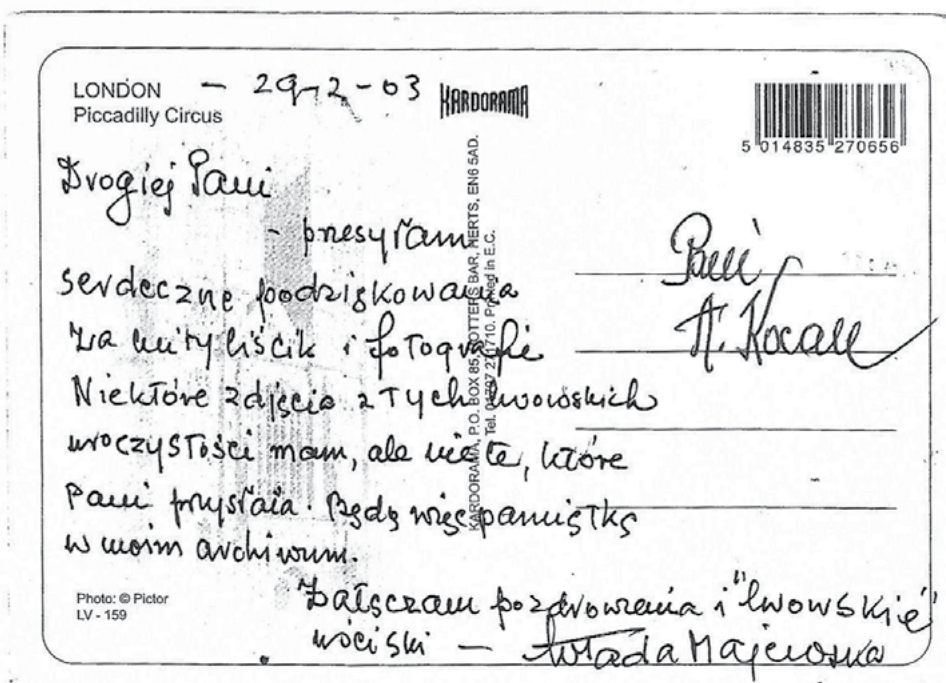 LONDON — 29-2-03
Piccadilly Circus
KARDORAMA
5 014835 270656
Drogiej Pani
- przesyłam
serdeczne podziękowania
za miły liścik i fotografie
Niektóre zdjęcia z tych lwowskich
uroczystości mam, ale nie te, które
Pani przysłała. Będą więc pamiątką
w moim archiwum.
Załączam pozdrowienia i "lwowskie"
uściski — Włada Majewska
Pani
A. Kocan
KARDORAMA, P.O. BOX 85, POTTERS BAR, HERTS, EN6 5AD.
Tel. 271710. Printed in E.C.
Photo: © Pictor
LV - 159